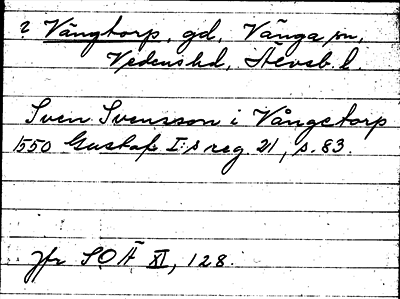 ? Vångtorp, gd, Vånga sn,
Vedens hd, Älvsb. l.
Sven Svensson i Vångetorp
1550 Gustaf I:s reg. 21, s. 83.
Jfr SOÄ XI, 128.